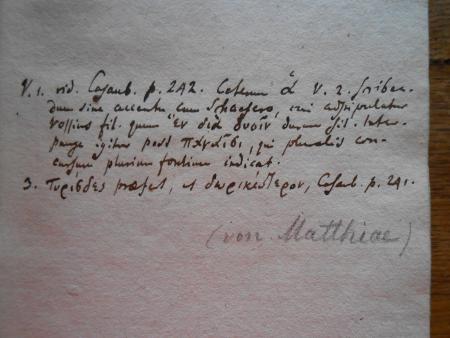 V. 1. vid. Casaub. p. 242. Ceterum ἁ v. 2. scriben-
dum sine accentu cum Schaefero, cui adstipulatur
Vossius fil. quum ἓν διὰ δυοῖν durum sit. Inter-
punge igitur post παγαῖσι, qui pluralis con-
cursum plurium fontium indicat.
3. Τυρίσδες praefert, ut δωρικώτερον, Casaub. p. 241.
(von Matthiae)